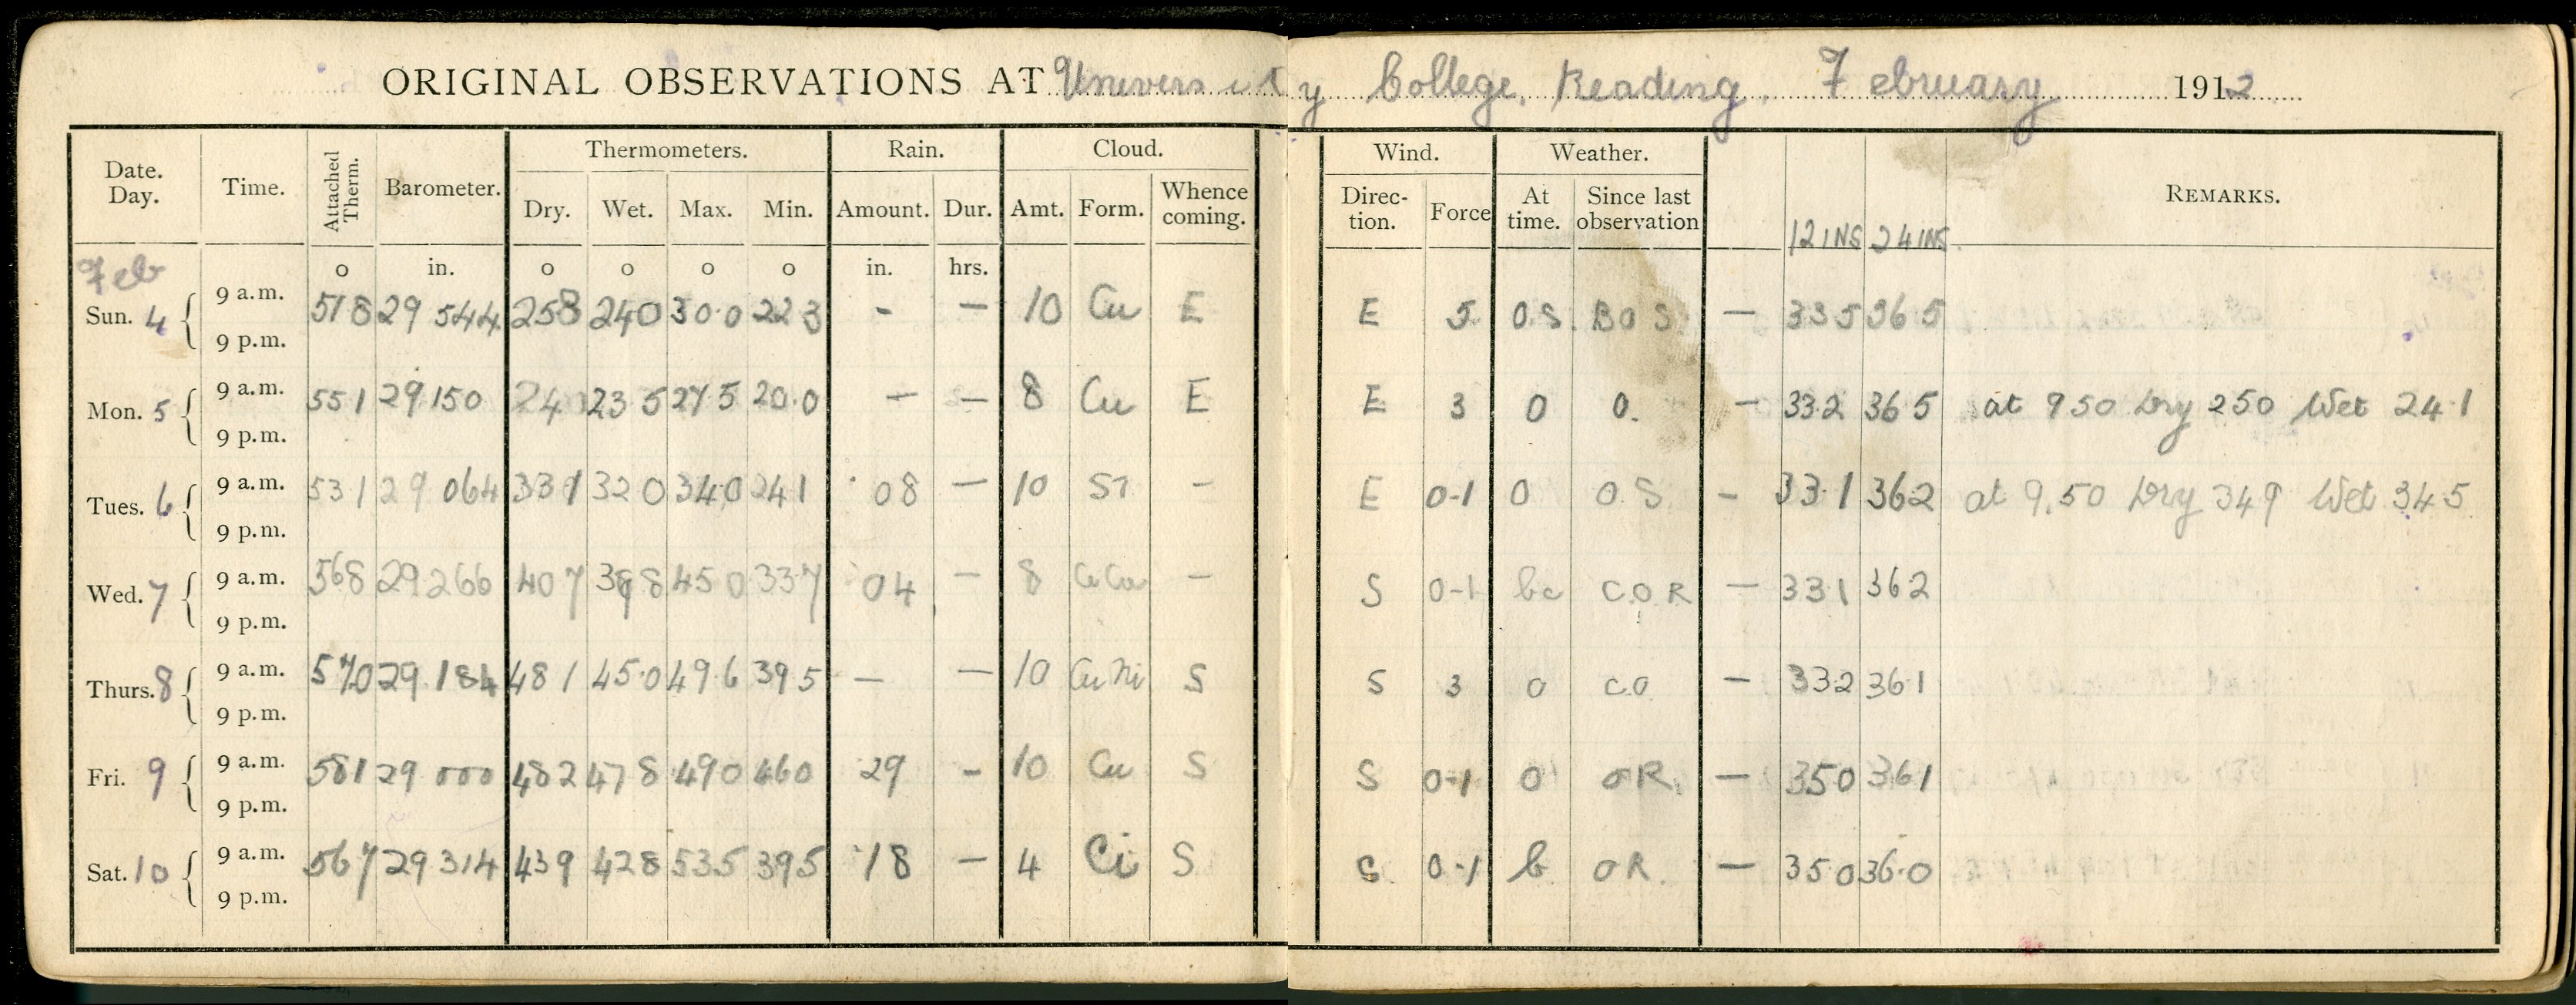 ORIGINAL OBSERVATIONS AT University College, Reading. February 1912
Thermometers. Rain. Cloud. Wind. Weather.
Date. Day. Time. Attached Therm. Barometer. Dry. Wet. Max. Min. Amount. Dur. Amt. Form. Whence coming. Direction. Force At time. Since last observation 12 INS 24 INS. REMARKS.
Feb o in. o o o o in. hrs.
Sun. 4 { 9 a.m. 51 8 29 544 25 8 24 0 30.0 22 3 - — 10 Cu E E 5 O.S. B O S. — 33 5 36 5
9 p.m.
Mon. 5 { 9 a.m. 55 1 29 150 24 0 23 5 27 5 20.0 — — 8 Cu E E 3 O O. — 33.2 36 5 at 9 50 Dry 25 0 Wet 24.1
9 p.m.
Tues. 6 { 9 a.m. 53 1 29 064 33 1 32 0 34.0 24 1 .08 — 10 ST - E 0-1 O O S. - 33.1 36 2 at 9.50 Dry 34 9 Wet 34.5
9 p.m.
Wed. 7 { 9 a.m. 56 8 29 266 40 7 39 8 45 0 33.7 04 — 8 Ci Cu — S 0-1 bc C.O R — 33 1 36 2
9 p.m.
Thurs. 8 { 9 a.m. 57.0 29.184 48 1 45.0 49.6 39 5 — — 10 Cu Ni S S 3 O C.O. — 33.2 36.1
9 p.m.
Fri. 9 { 9 a.m. 58 1 29 000 48 2 47 8 49 0 46 0 29 - 10 Cu S S 0-1 O O R. — 35.0 36.1
9 p.m.
Sat. 10 { 9 a.m. 56 7 29 314 43 9 42 8 53 5 39 5 .18 — 4 Ci S S 0-1 b O R. — 35.0 36.0
9 p.m.